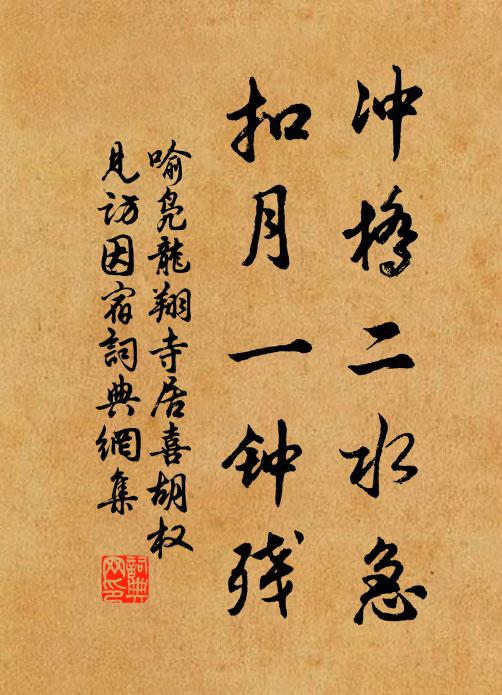 冲橋二水急
扣月一钟残
喻凫龍翔寺居喜胡权
見訪因宿詞典網集
詞典
网印